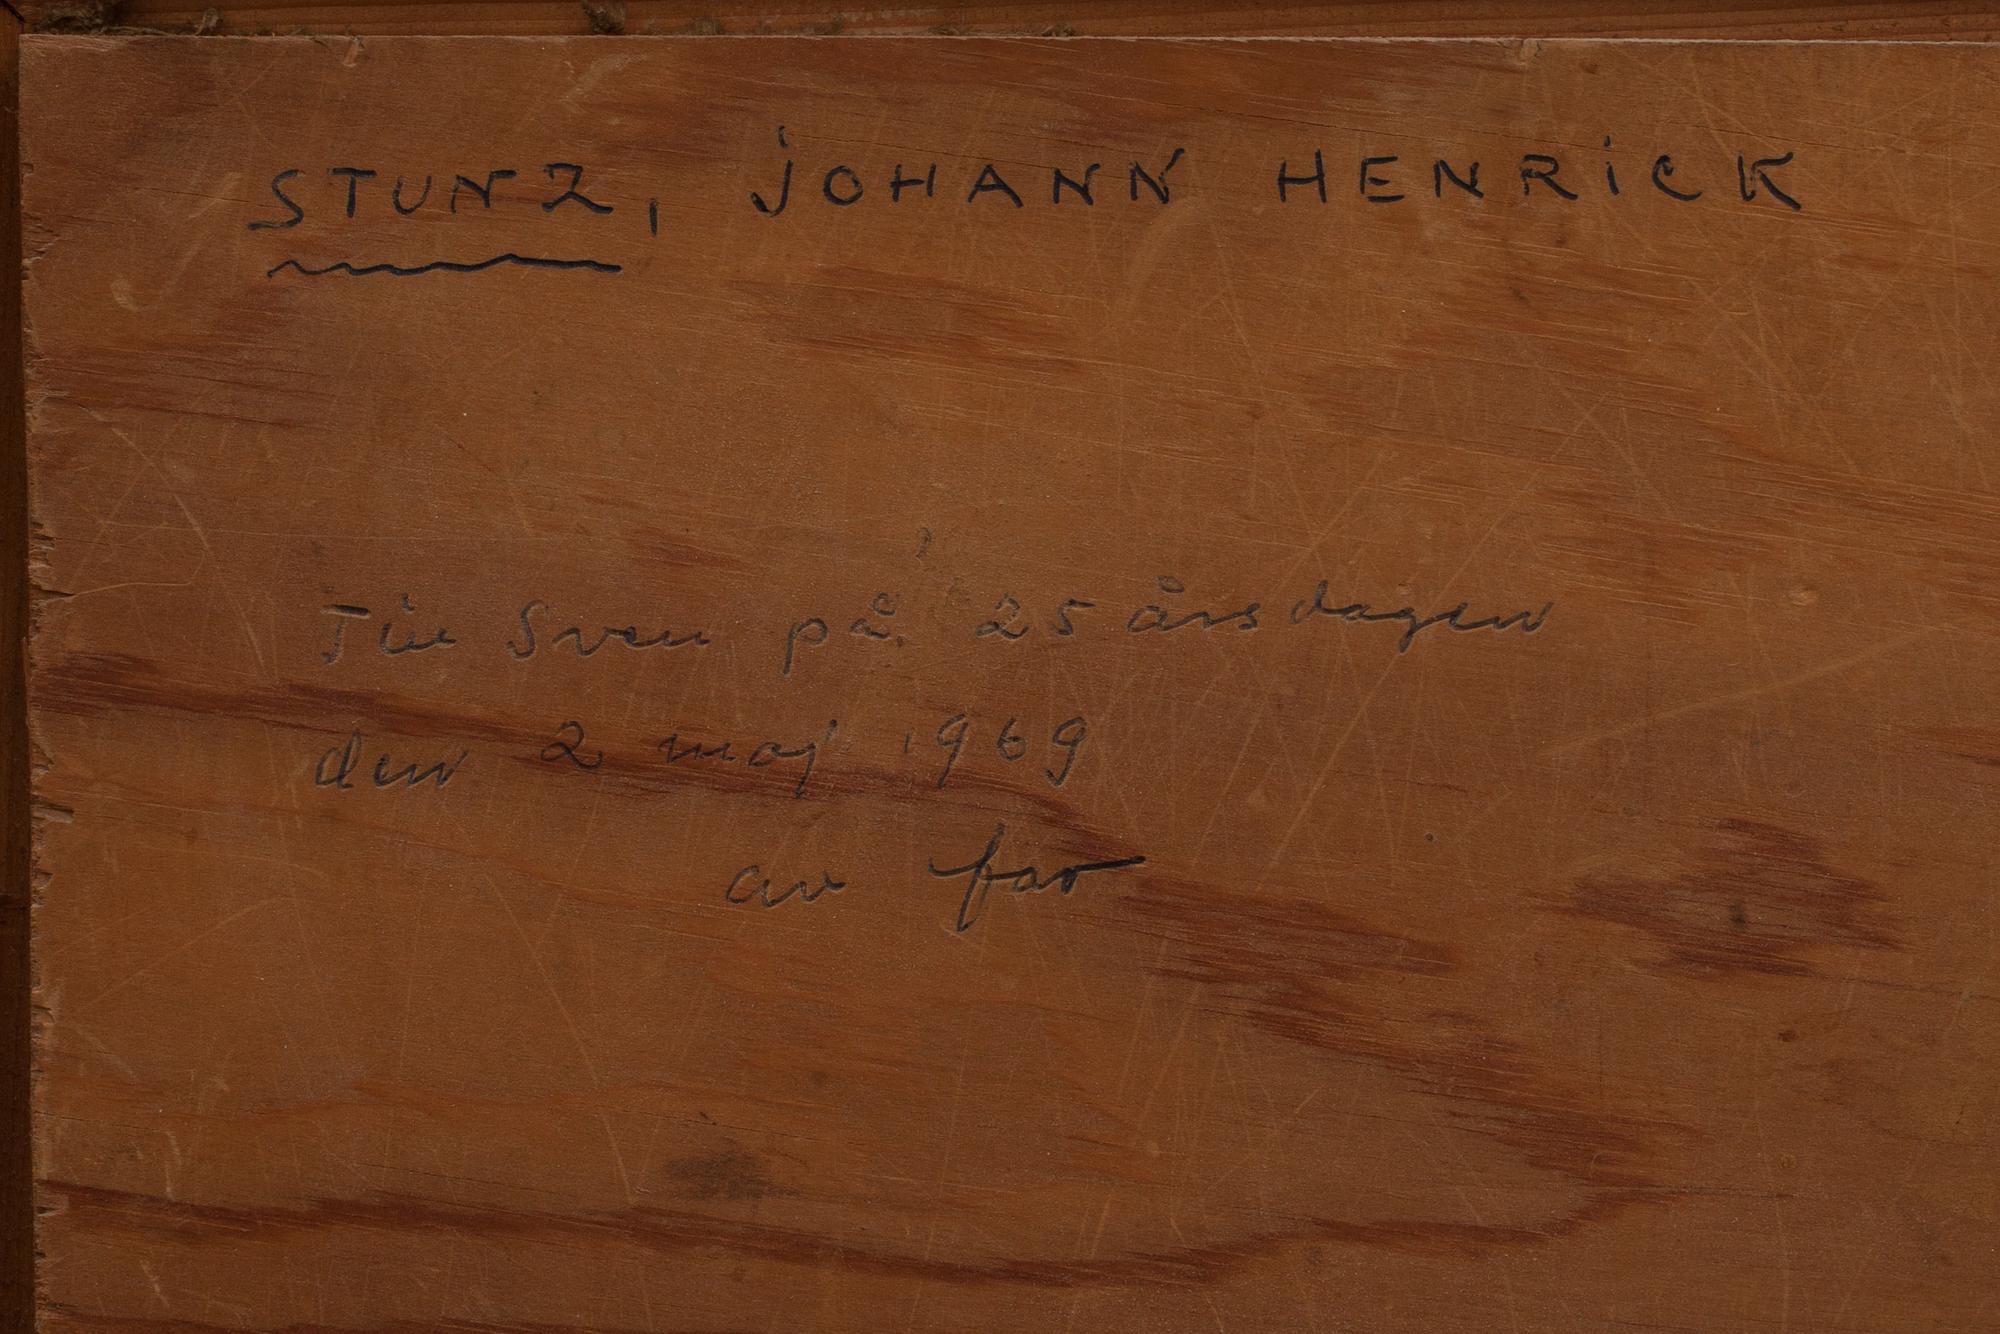 STUNZ, JOHANN HENRICK
Till Sven på 25 årsdagen
den 2 maj 1969
av far